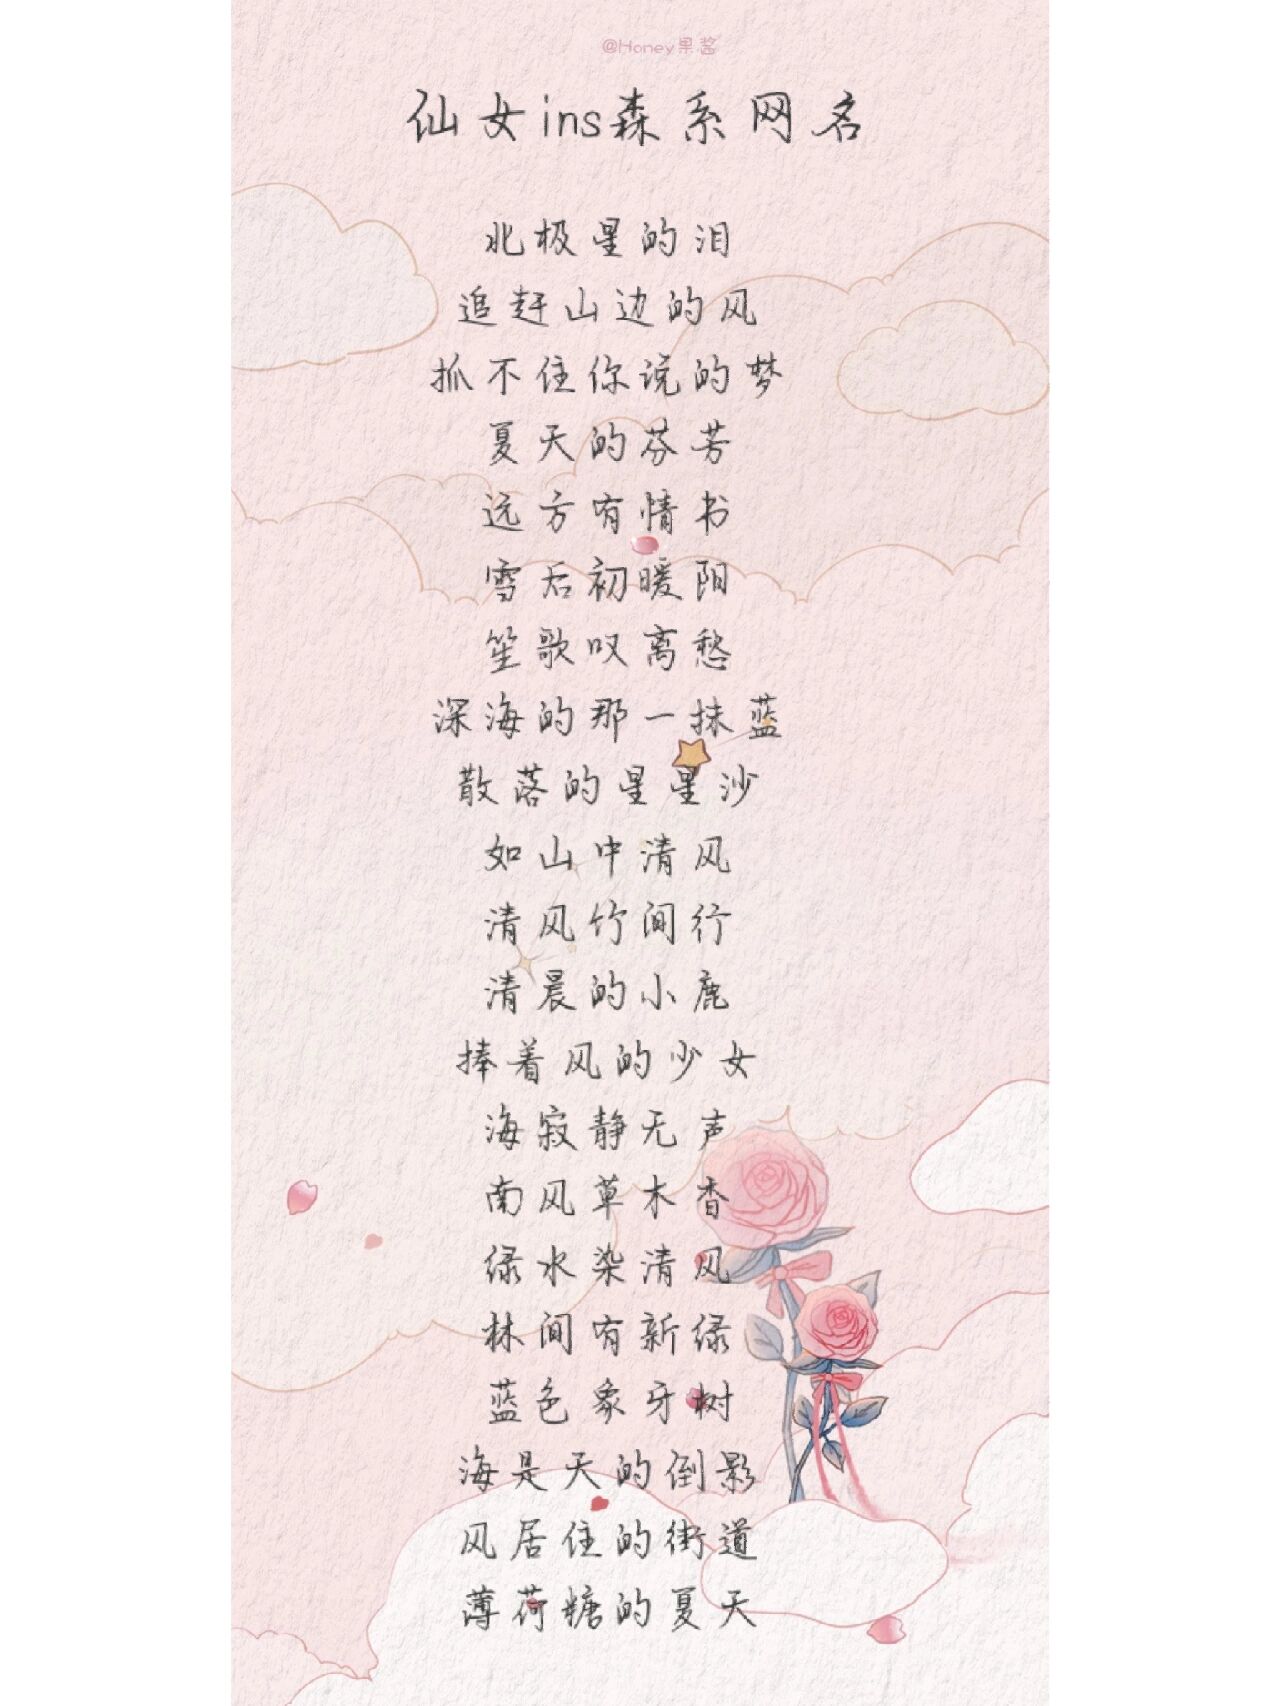 @Honey果酱
仙女ins森系网名
北极星的泪
追赶山边的风
抓不住你说的梦
夏天的芬芳
远方有情书
雪后初暖阳
笙歌叹离愁
深海的那一抹蓝
散落的星星沙
如山中清风
清风竹间行
清晨的小鹿
捧着风的少女
海寂静无声
南风草木香
绿水染清风
林间有新绿
蓝色象牙树
海是天的倒影
风居住的街道
薄荷糖的夏天